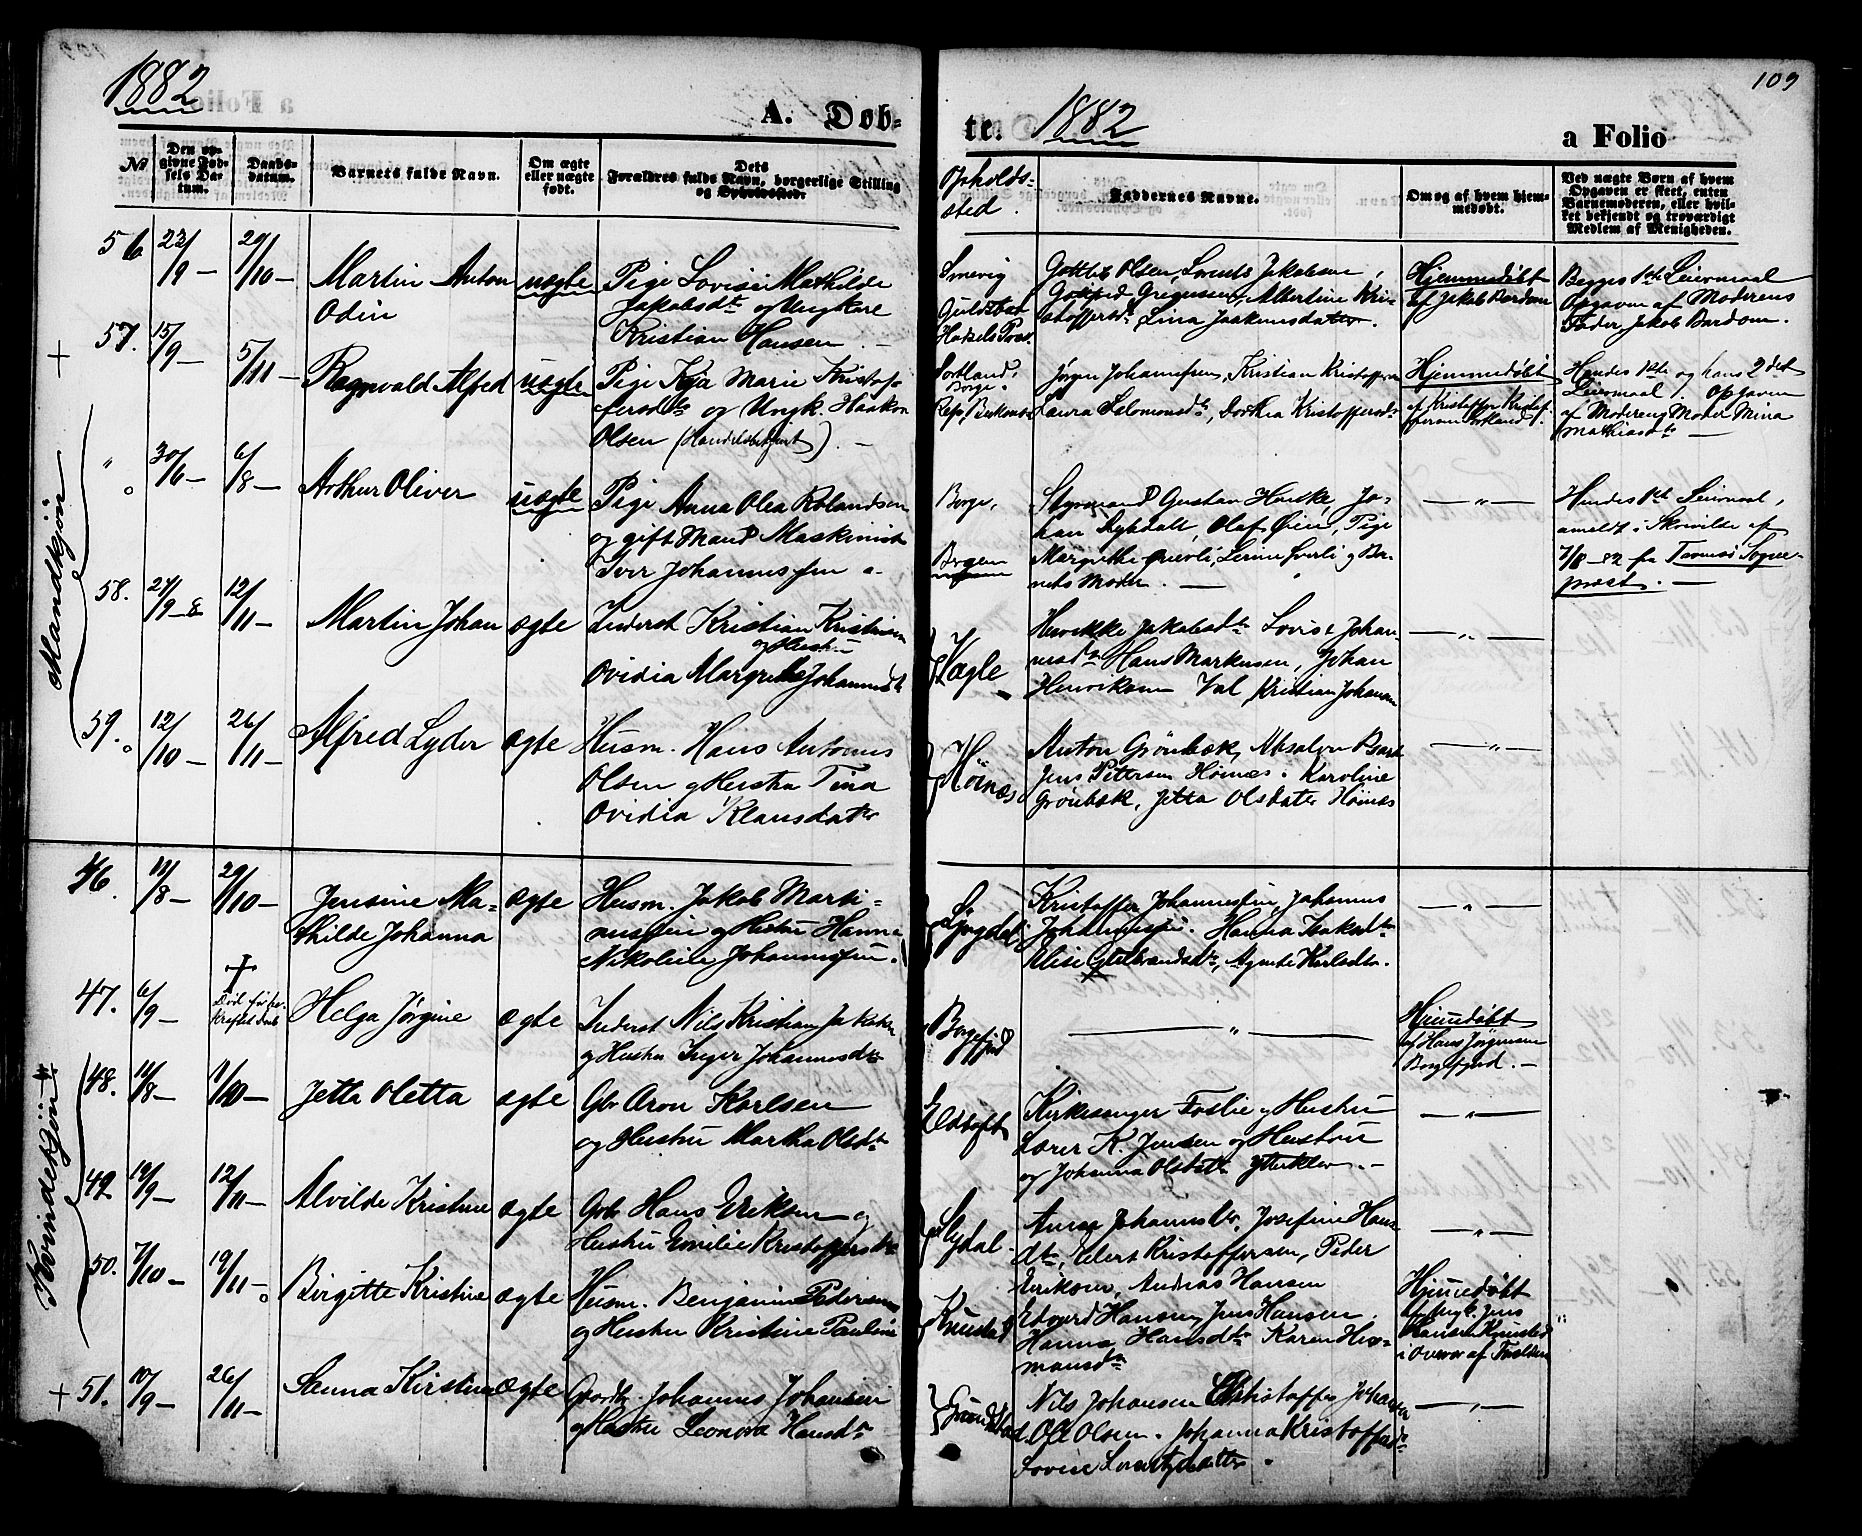 1882
A. Døb-
te.
1882
a Folio
109
№
Den op-
givne Fød-
sels Da-
tum.
Daabs-
datum.
Barnets fulde Navn.
Om ægte
eller uægte
født.
Dets
Forældres fulde Navn, borgerlige Stilling
og Opholdssted.
Opholds-
sted.
Faddernes Navne.
Om og af hvem hjem-
medøbt.
Ved uægte Børn af hvem
Opgaven er skeet, enten
Barnemoderen, eller hvil-
ket bekjendt og troværdigt
Medlem af Menigheden.
Mandkjøn
56 23/9 – 29/10 – Martin Anton
Odin
uægte
Pige Lovise Mathilde
Jakobsdt og Ungkarl
Kristian Hansen. –
Smevig
Gottlieb Olsen, Lorents Jakobsen,
Gotfred Gregussen, Albertine Kri-
stoffersdt, Lina Joakimsdatter.
Hjemmedøbt
af Jakob Bardom
Begges 1ste Leiermaal
Opgaven af Moderens
Fader, Jakob Bardom.
+ 57. 15/9 – 5/11 – Ragnvald Alfred
uægte
Pige Kaja Marie Kristof-
fersdt og Ungk. Haakon
Olsen (Handelsbetjent). –
Sortland,
Borge.
Jørgen Johannessen, Kristian Kristoffersen
Laura Salomonsdt, Dorthea Kristoffersdt
Hjemmedøbt
af Kristoffer Kristof-
fersen Sortland.
Hendes 1ste og hans 2det
Leiermaal. Opgaven
af Moderens Moder Mina
Mathiasdt –
" 30/6 – 6/8 – Arthur Oliver
uægte
Pige Anna Olea Rolandsen
og gift Mand Maskinist
Iver Johannessen
Borge,
Bergen
Styrmand Gustav
han Dybdalt, Olaf Øien, Pige
Margrethe
nets Moder. –
– " –
Hendes 1ste Leiermaal,
anmeldt i Skrivelse af
7/8 – 82 fra Tromsø Sogne-
præst. –
58. 27/9 – 12/11 – Martin Johan
ægte
Inderst Kristian Kristiansen
og Hustru
Ovidia Margrethe Johannesdt
Vægle
Henrikke Jakobsdt Lovise Johan-
nesdt Hans Markusen, Johan
Henriksen Val, Kristian Johansen
– " –
59. 12/10 – 26/11 – Alfred Lyder
ægte
Husm. Hans Antonius
Olsen og Hustru Tina
Ovidia Klausdatter
Høinæs
Anton Grønbæk, Absalon
Jens Pettersen Høinæs. Karoline
Grønbæk, Jetta Olsdatter Høinæs
– " –
Kvindekjøn
46. 11/8 – 29/10 – Jensine Ma-
thilde Johanna
ægte
Husm. Jakob Marti-
nussen og Hustru Hanna
Nikoline Johannessen.
Lyngdal
Kristoffer Johannessen, Johannes
Johannessen. Hanna Isaksdt
Elise Gulbrandsdt, Agnete Karlsdt.
– " –
47. 6/9 – Død før be-
kræftet Daab
Helga Jørgine
ægte
Inderst Nils Kristian Jakobsen
og Hustru Inger Johannesdt
Borgefjord
– " –
Hjemmedøbt
af Hans Jørgensen
Borgefjord. –
48. 14/8 – 1/10 – Jetta Oletta
ægte
Gbr Aron Karlsen
og Hustru Martha Olsdt
Eltoft
Kirkesanger Foslie og Hustru
Lærer K. Jensen og Hustru
og Johanna Olsdatter
– " –
49. 19/9 – 12/11 – Alvilde Kristine
ægte
Gbr Hans Eriksen og
Hustru Emilie Kristoffersdt
Slydal.
Anna Johannesdt, Josefine Hans-
dt, Edert Kristoffersen, Peder
Eriksen, Andreas Hansen
– " –
50. 7/10 – 19/11 – Birgitte Kristine
ægte
Husm. Benjamin Pedersen
og Hustru Kristine Pauline
Knustad
Edvard Hansen, Jens Hansen,
Hanna Hansdt Karen Her-
mansdt
Hjemmedøbt
af Ungk. Jens
Hansen Knustad
i Overvær af Forældrene
+ 51. 10/9 – 26/11 – Sanna Kirstine
ægte
Gaardb. Johannes Johansen
og Hustru Leonora Hansdt
Grundstad
Nils Johansen Christoffer Johansen
Ole Olsen. Johanna Kristoffersdt
Lovise Lorentsdatter.
– " –